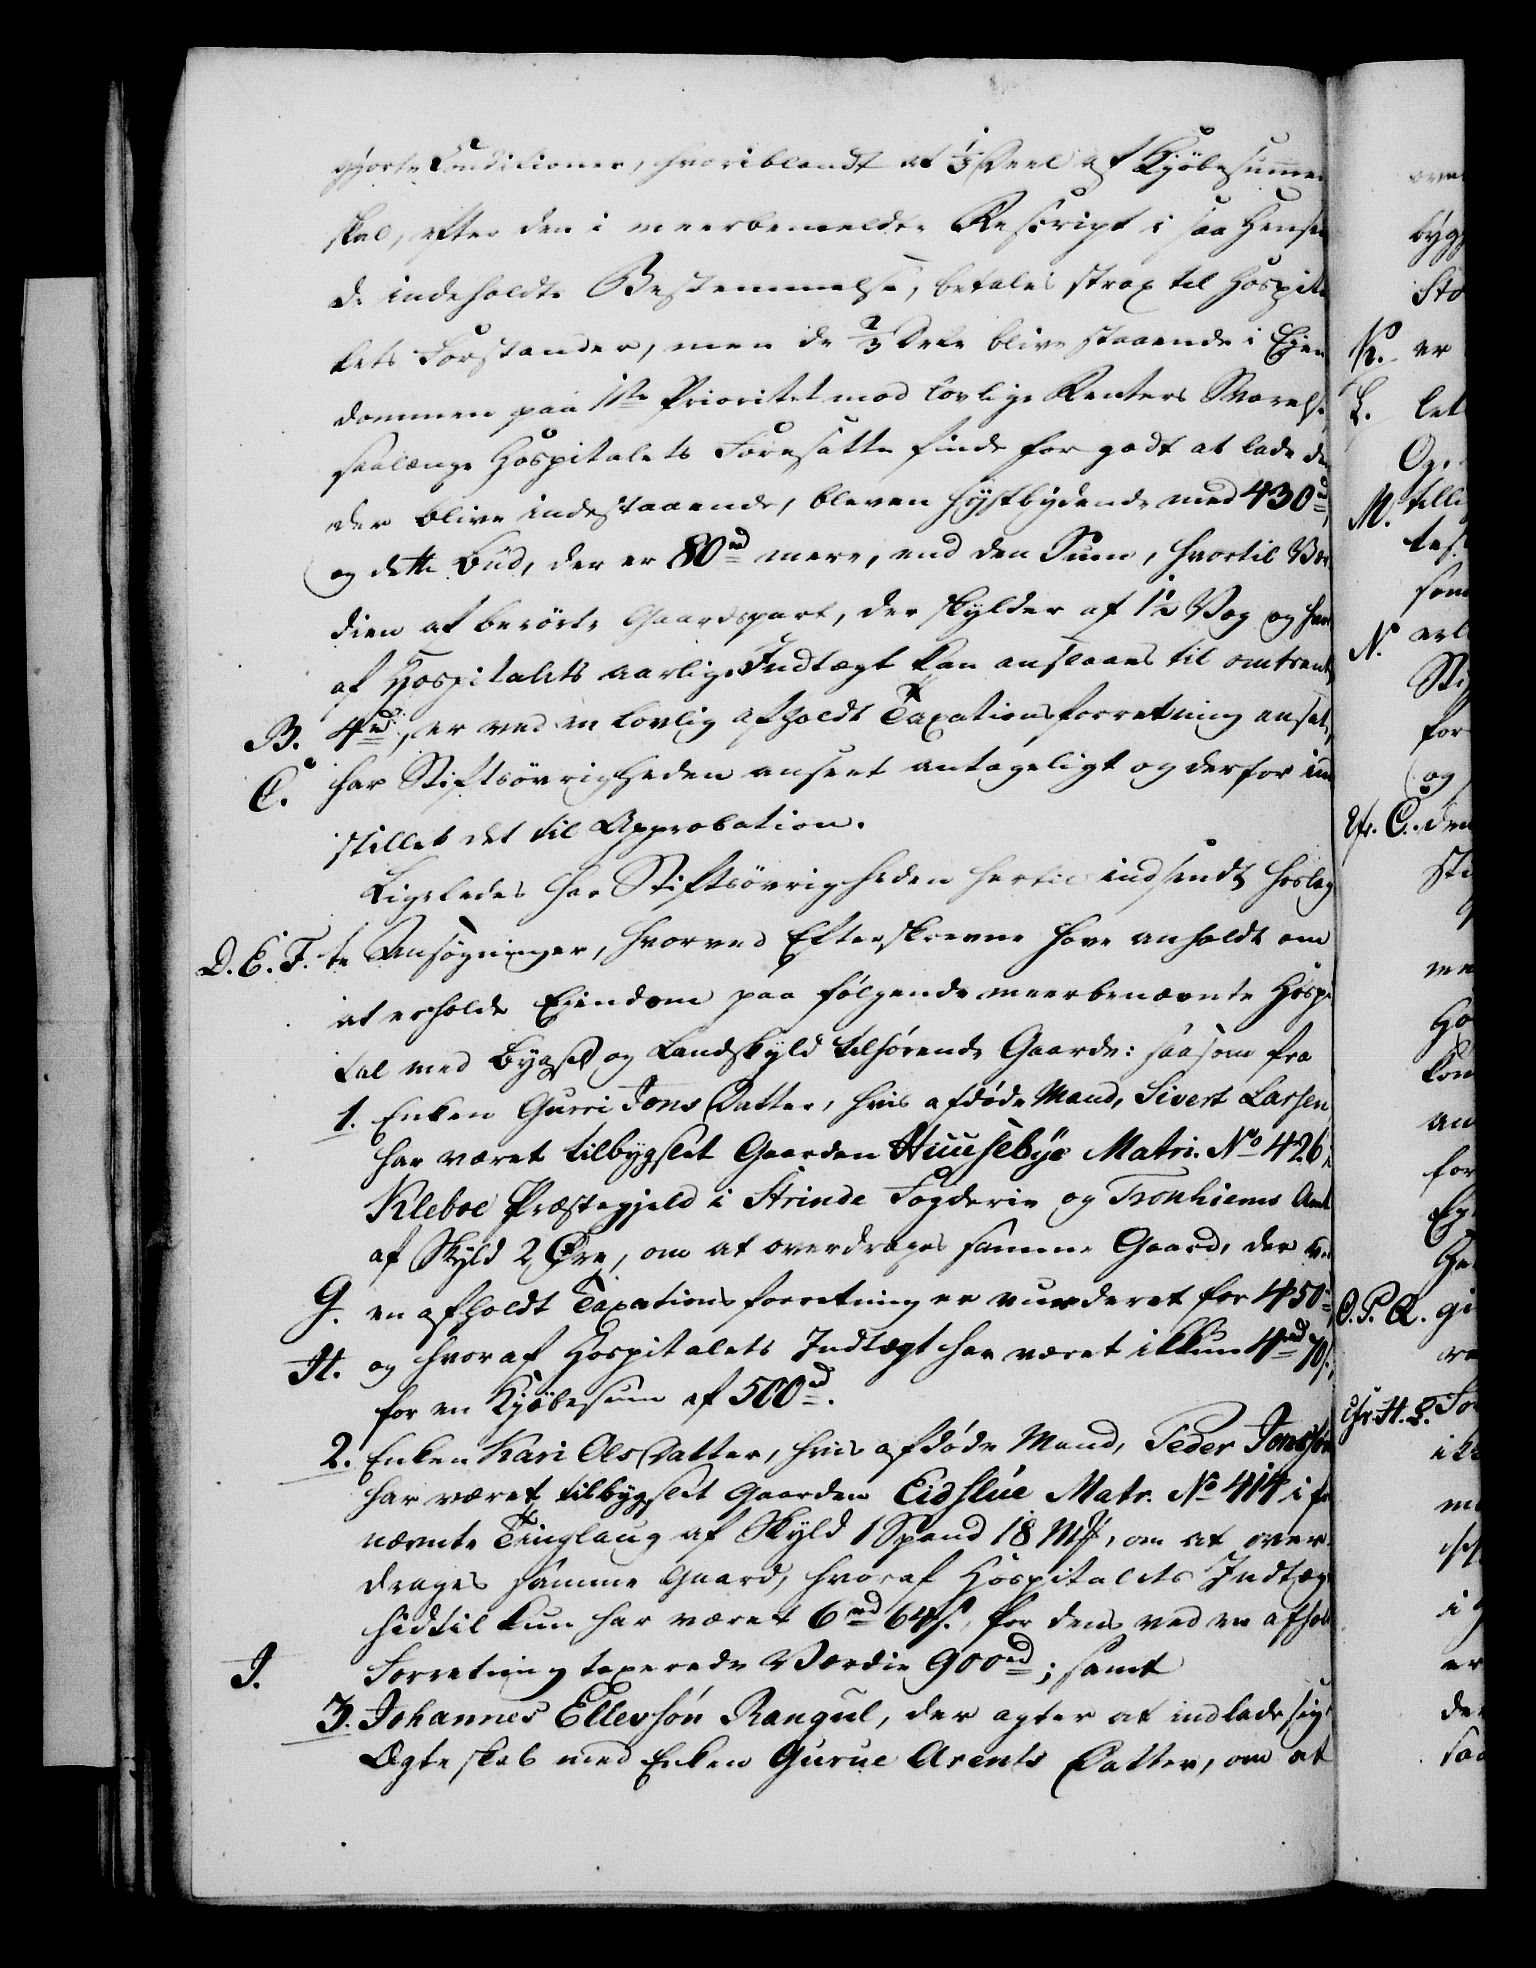 gjorte Conditioner, hvoriblandt at 1/3 Deel af Kjöbesummen
skal, efter den i meerbemeldte Rescript i saa Hense
de indeholdte Bestemmelse, betales strax til Hospita
lets Forstander, men de 2/3 Dele blive staaende i Ejen
dommen paa 1ste Prioritet mod lovlige Renters Svarelse,
saalænge Hospitalets Foresatte finde for godt at lade den
der blive indestaaende, bleven höystbydende med 430 rd,
og dette Bud, der er 80 rd mere, end den Sum, hvortil Vær
dien af berörte Gaardspart, der skylder af 1½ Vog og hvor
af Hospitalets aarlige Indtægt kan anslaaes til omtrent
B. 4 rd, er ved en lovlig afholdt Taxationsforretning ansat,
C. har Stiftsövrigheden anseet antageligt og derfor ind
stillet det til Approbation.
Ligeledes har Stiftsövrigheden hertil indsendt hoslag
D. E. F. te Ansögninger, hvorved Efterskrevne have anholdt om
at erholde Ejendom paa fölgende meerbenævnte Hospi
tal med Bygsel og Landskyld tilhörende Gaarde: saasom fra
1. Enken Gurri Jons Datter, hvis afdöde Mand, Sivert Larsen
har været tilbygslet Gaarden Huusebÿe Matri. No 426 i
Kleboe Præstegjeld i Strinde Fogderie og Tronhiems Amt
af Skyld 2 Øre, om at overdrages samme Gaard, der ved
G. en afholdt Taxations forretning er vurderet for 450 rd,
H. og hvoraf Hospitalets Indtægt har været ikkun 4 rd 70 s.,
for en Kjöbesum af 500 rd.
2. Enken Kari Ols Datter, hvis afdöde Mand, Peder Jonssön
har været tilbygslet Gaarden Eidslue Matr. No 414 i for
nævnte Tinglaug af Skyld 1 Spand 18 Mk, om at over
drages samme Gaard, hvoraf Hospitalets Indtægt
hidtil kun har været 6 rd 64 s. for dens ved en afholdt
I. Forretning taxerede Værdie 900 rd; samt
3. Johannes Ellevsön Rangul, der agter at indlade sig i
Ægteskab med Enken Gurue Arents Datter, om at
K. er
L. let
Og,
M. tilli
N. erl
for
og
Cfr. C. den
Ho
an
for
O. P. Q. gi
Cfr. H. L. For